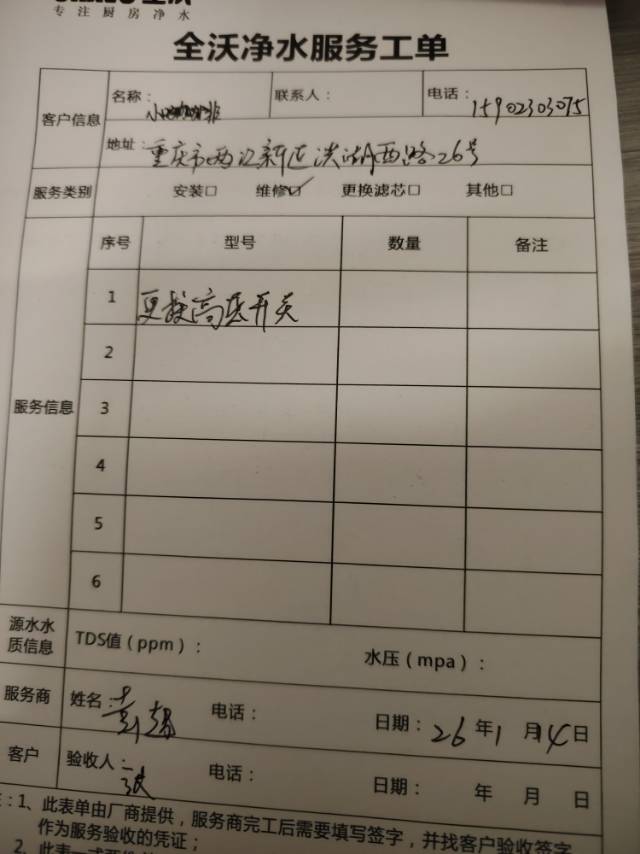 专注厨房净水
全沃净水服务工单
客户信息
名称：
联系人：
电话：15902303075
地址：重庆市两江新区洪湖西路26号
服务类别 安装□ 维修☑ 更换滤芯□ 其他□
服务信息
序号 型号 数量 备注
1 更换高压开关
2
3
4
5
6
源水水质信息 TDS值（ppm）： 水压（mpa）：
服务商 姓名： 电话： 日期：26年1月4日
客户 验收人： 电话： 日期： 年 月 日
1、此表单由厂商提供，服务商完工后需要填写签字，并找客户验收签字
作为服务验收的凭证；
2、此表一式两份